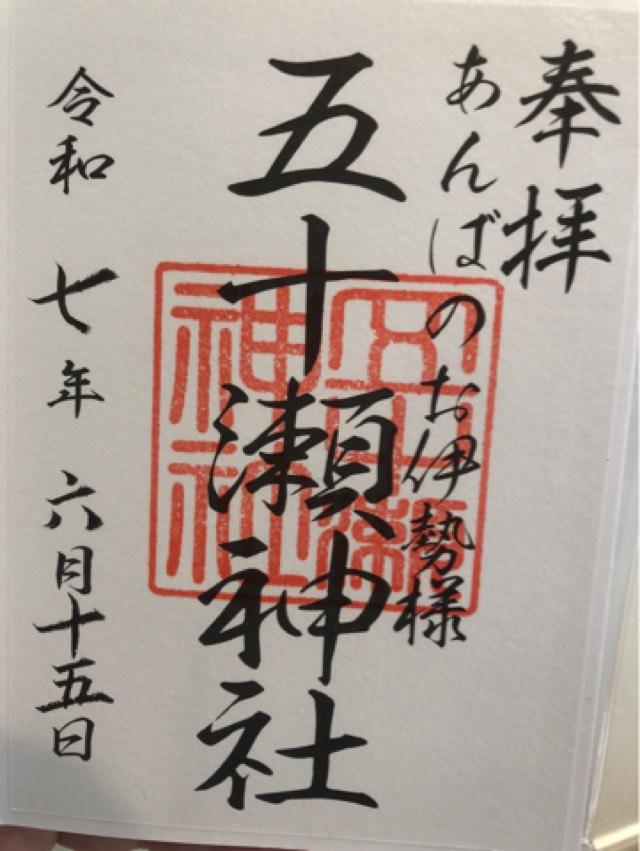 奉拝
あんばのお伊勢様
五十瀬神社
五十瀬
神社
令和七年六月十五日